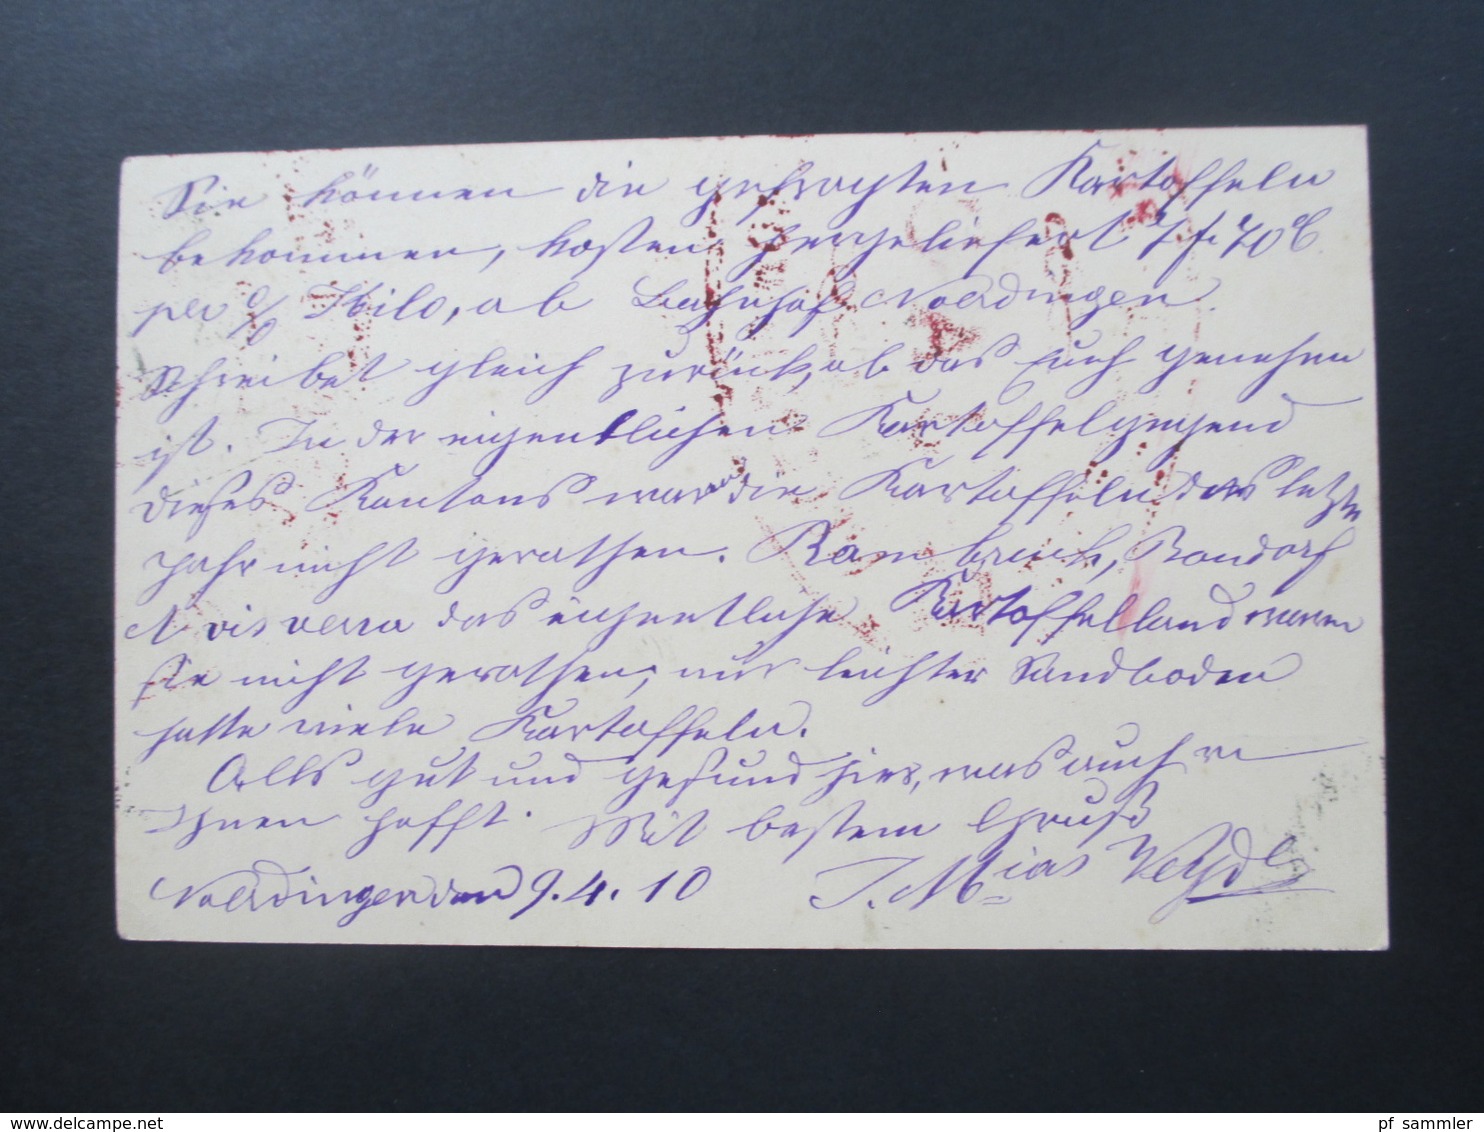 Sie können die gefragten Kartoffeln
bekommen, kosten hergeliefert 7 f. 70 c
per % Kilo, ab Bahnhof Noerdingen.
Schreibet gleich zurück, ob das Euch genehm
ist. In der eigentlichen Kartoffelgegend
dieses Kantons waren die Kartoffeln das letzte
Jahr nicht gerathen. Rambruch, Bondorf
vis versa das eigentliche Kartoffelland waren
sie nicht gerathen, nur leichter Sandboden
hatte viele Kartoffeln.
Alls gut und gesund hier, was auch v
Ihnen hofft. Mit bestem Gruß
Noerdingen den 9.4.10 J. Mias
pf_sammler
www.delcampe.net